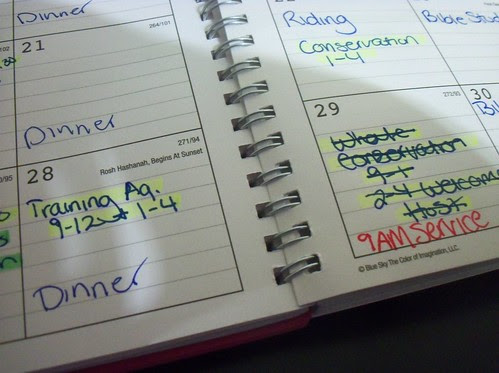 Dinner
21
264/101
Dinner
28
271/94
Rosh Hashanah, Begins At Sunset
Training Aq.
9-12 1-4
Dinner
Riding
Conservation
1-4
Bible
29
272/93
Whale
Conservation
9-1
2-4 Welcome
Host
9AM Service
© Blue Sky The Color of Imagination, LLC.
30